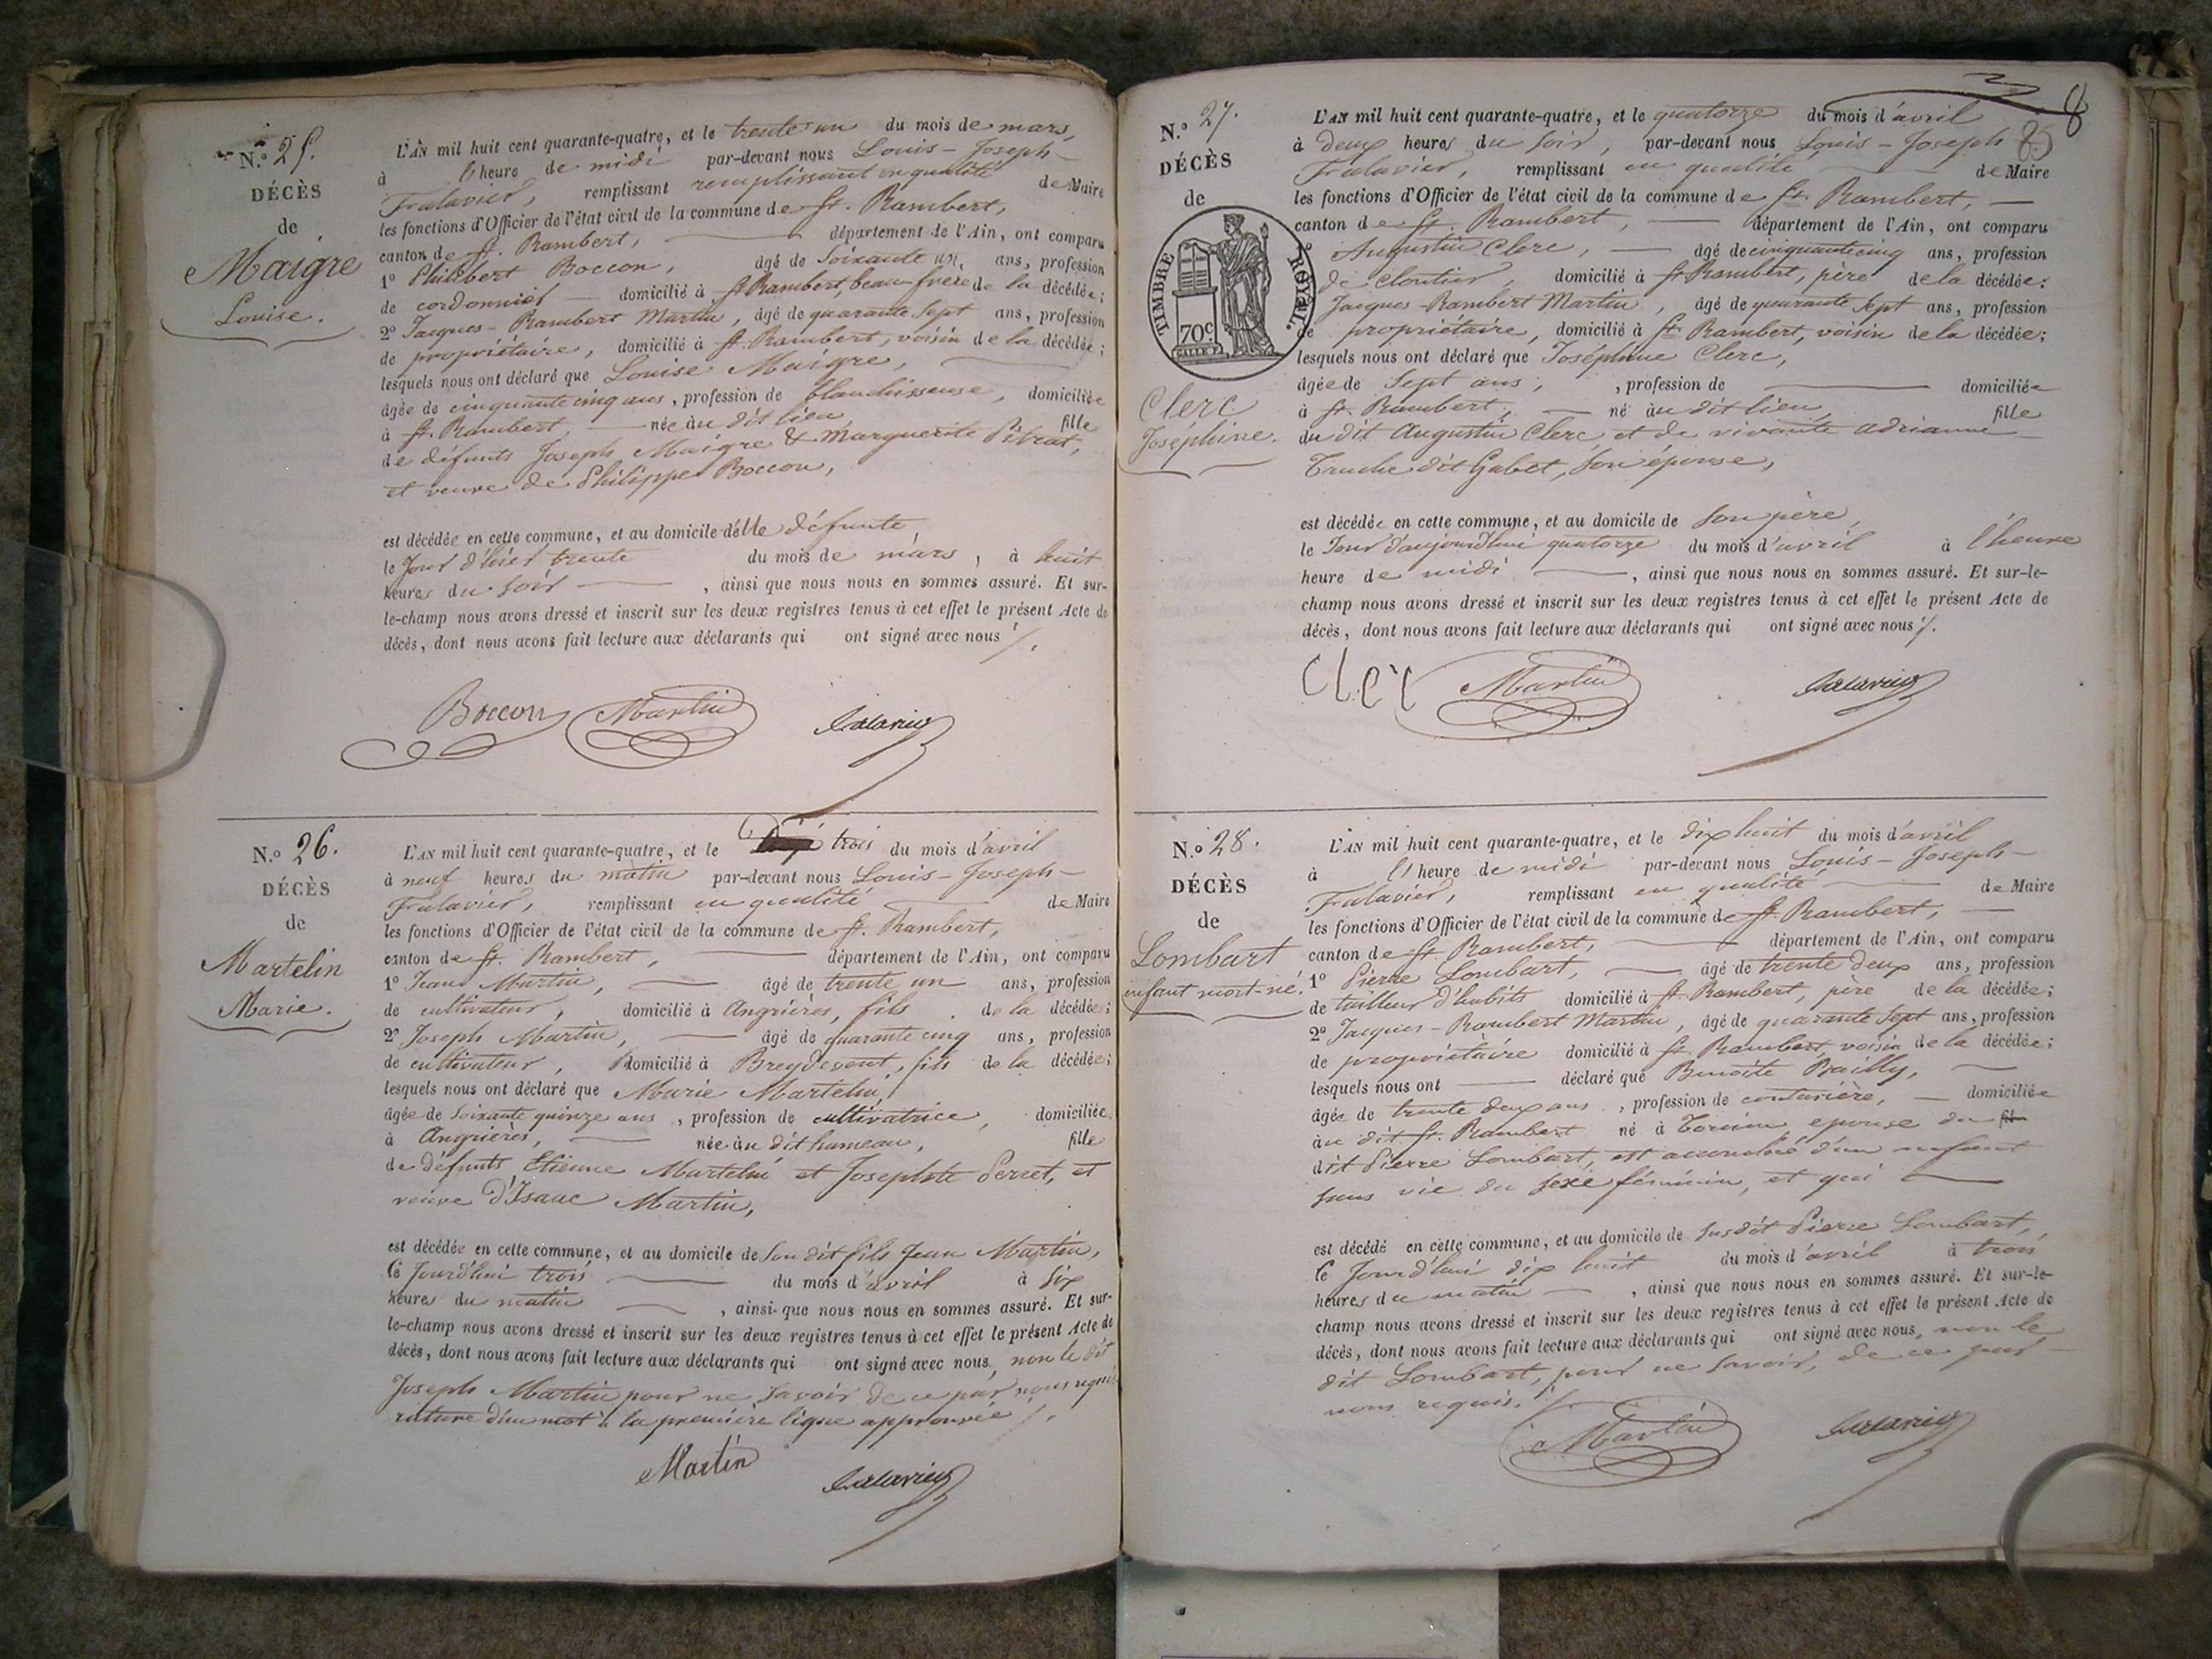 N.o 25.
DÉCÈS
de
Maigre
Louise.
L'AN mil huit cent quarante-quatre, et le trente un du mois de mars,
à l'heure de midi par-devant nous Louis-Joseph-
Falavier, remplissant remplissant en qualité de Maire
les fonctions d'Officier de l'état civil de la commune de St. Rambert,
canton de St. Rambert, département de l'Ain, ont comparu
1o Philibert Boccon, âgé de Soixante un, ans, profession
de cordonnier domicilié à St Rambert, beau-frère de la décédée;
2o Jacques-Rambert Martin, âgé de quarante Sept ans, profession
de propriétaire, domicilié à St. Rambert, voisin de la décédée;
lesquels nous ont déclaré que Louise Maigre,
âgée de cinquante cinq ans, profession de blanchisseuse, domiciliée
à St. Rambert, née au dit lieu fille
de défunts Joseph Maigre & Marguerite Pitrat,
et veuve de Philippe Boccon,
est décédée en cette commune, et au domicile d'elle défunte
le Jour d'hier trente du mois de mars, à huit
heures du soir, ainsi que nous nous en sommes assuré. Et sur-
le-champ nous avons dressé et inscrit sur les deux registres tenus à cet effet le présent Acte de
décès, dont nous avons fait lecture aux déclarants qui ont signé avec nous ./.
Boccon Martin Falavier
N.o 26.
DÉCÈS
de
Martelin
Marie.
L'AN mil huit cent quarante-quatre, et le trois du mois d'avril
à neuf heures du matin par-devant nous Louis-Joseph-
Falavier, remplissant en qualité de Maire
les fonctions d'Officier de l'état civil de la commune de St. Rambert,
canton de St. Rambert, département de l'Ain, ont comparu
1o Jean Martin, âgé de trente un ans, profession
de cultivateur, domicilié à Angrières, fils de la décédée;
2o Joseph Martin, âgé de quarante cinq ans, profession
de cultivateur, domicilié à Breydevent, fils de la décédée;
lesquels nous ont déclaré que Marie Martelin,
âgée de Soixante quinze ans, profession de cultivatrice, domiciliée
à Angrières, née au dit hameau, fille
de défunts Etienne Martelin et Josephte Perret, et
veuve d'Isaac Martin,
est décédée en cette commune, et au domicile de son dit fils Jean Martin,
Ce Jourd'hui trois du mois d'avril à six
heures du matin, ainsi que nous nous en sommes assuré. Et sur-
le-champ nous avons dressé et inscrit sur les deux registres tenus à cet effet le présent Acte de
décès, dont nous avons fait lecture aux déclarants qui ont signé avec nous, non le dit
Joseph Martin pour ne savoir de ce par nous requis
rature d'un mot à la première ligne approuvée ./.
Martin Falavier
8
N.o 27.
DÉCÈS
de
TIMBRE ROYAL.
70c.
Clerc
Joséphine.
L'AN mil huit cent quarante-quatre, et le quatorze du mois d'avril
à Deux heures du soir, par-devant nous Louis-Joseph
Falavier, remplissant en qualité de Maire
les fonctions d'Officier de l'état civil de la commune de St. Rambert,
canton de St. Rambert, département de l'Ain, ont comparu
Augustin Clerc, âgé de cinquante cinq ans, profession
de cloutier, domicilié à St Rambert, père de la décédée;
Jacques-Rambert Martin, âgé de quarante Sept ans, profession
de propriétaire, domicilié à St Rambert, voisin de la décédée;
lesquels nous ont déclaré que Joséphine Clerc,
âgée de Sept ans, , profession de domiciliée
à St. Rambert, né au dit lieu, fille
du dit Augustin Clerc, et de vivante Adrianne
Truche dit Gabet, son épouse,
est décédée en cette commune, et au domicile de son père,
le Jour d'aujourd'hui quatorze du mois d'avril à l'heure
heure de midi, ainsi que nous nous en sommes assuré. Et sur-le-
champ nous avons dressé et inscrit sur les deux registres tenus à cet effet le présent Acte de
décès, dont nous avons fait lecture aux déclarants qui ont signé avec nous ./.
Clerc Martin Falavier
N.o 28.
DÉCÈS
de
Lombart
enfant mort-né.
L'AN mil huit cent quarante-quatre, et le dix huit du mois d'avril
à l'heure de midi par-devant nous Louis-Joseph-
Falavier, remplissant en qualité de Maire
les fonctions d'Officier de l'état civil de la commune de St. Rambert,
canton de St. Rambert, département de l'Ain, ont comparu
1o Pierre Lombart, âgé de trente deux ans, profession
de tailleur d'habits domicilié à St. Rambert, père de la décédée;
2o Jacques-Rambert Martin, âgé de quarante Sept ans, profession
de propriétaire domicilié à St. Rambert voisin de la décédée;
lesquels nous ont déclaré que Benoite Bailly,
âgée de trente deux ans, profession de couturière, domiciliée
au dit St. Rambert né à Torcieu, épouse du
dit Pierre Lombart, est accouchée d'un enfant
sans vie du sexe féminin, et qui
est décédé en cette commune, et au domicile de susdit Pierre Lombart,
Ce Jourd'hui dix huit du mois d'avril à trois
heures du matin, ainsi que nous nous en sommes assuré. Et sur-le-
champ nous avons dressé et inscrit sur les deux registres tenus à cet effet le présent Acte de
décès, dont nous avons fait lecture aux déclarants qui ont signé avec nous, non le
dit Lombart, pour ne savoir, de ce par
nous requis. ./.
Martin Falavier